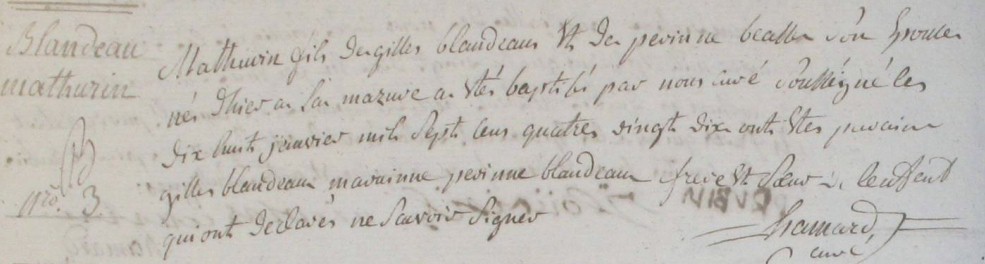 Blandeau
mathurin
B
nro. 3
Mathurin fils de gilles blandeau et de perinne bealle son Epouse
né d'hier a la mazure a etés baptisé par nous curé soussigné les
dix huit janvier mils sept cens quatres vingt dix ont etes parain
gilles blandeau marainne perinne blandeau frere et sœur de l'enfent
qui ont declarés ne savoir signer
hamard,
curé